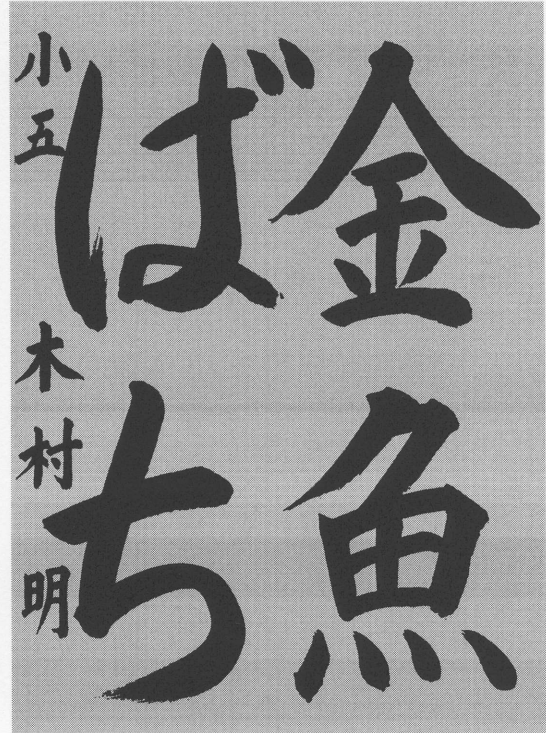 金魚
ばち
小五 木村明